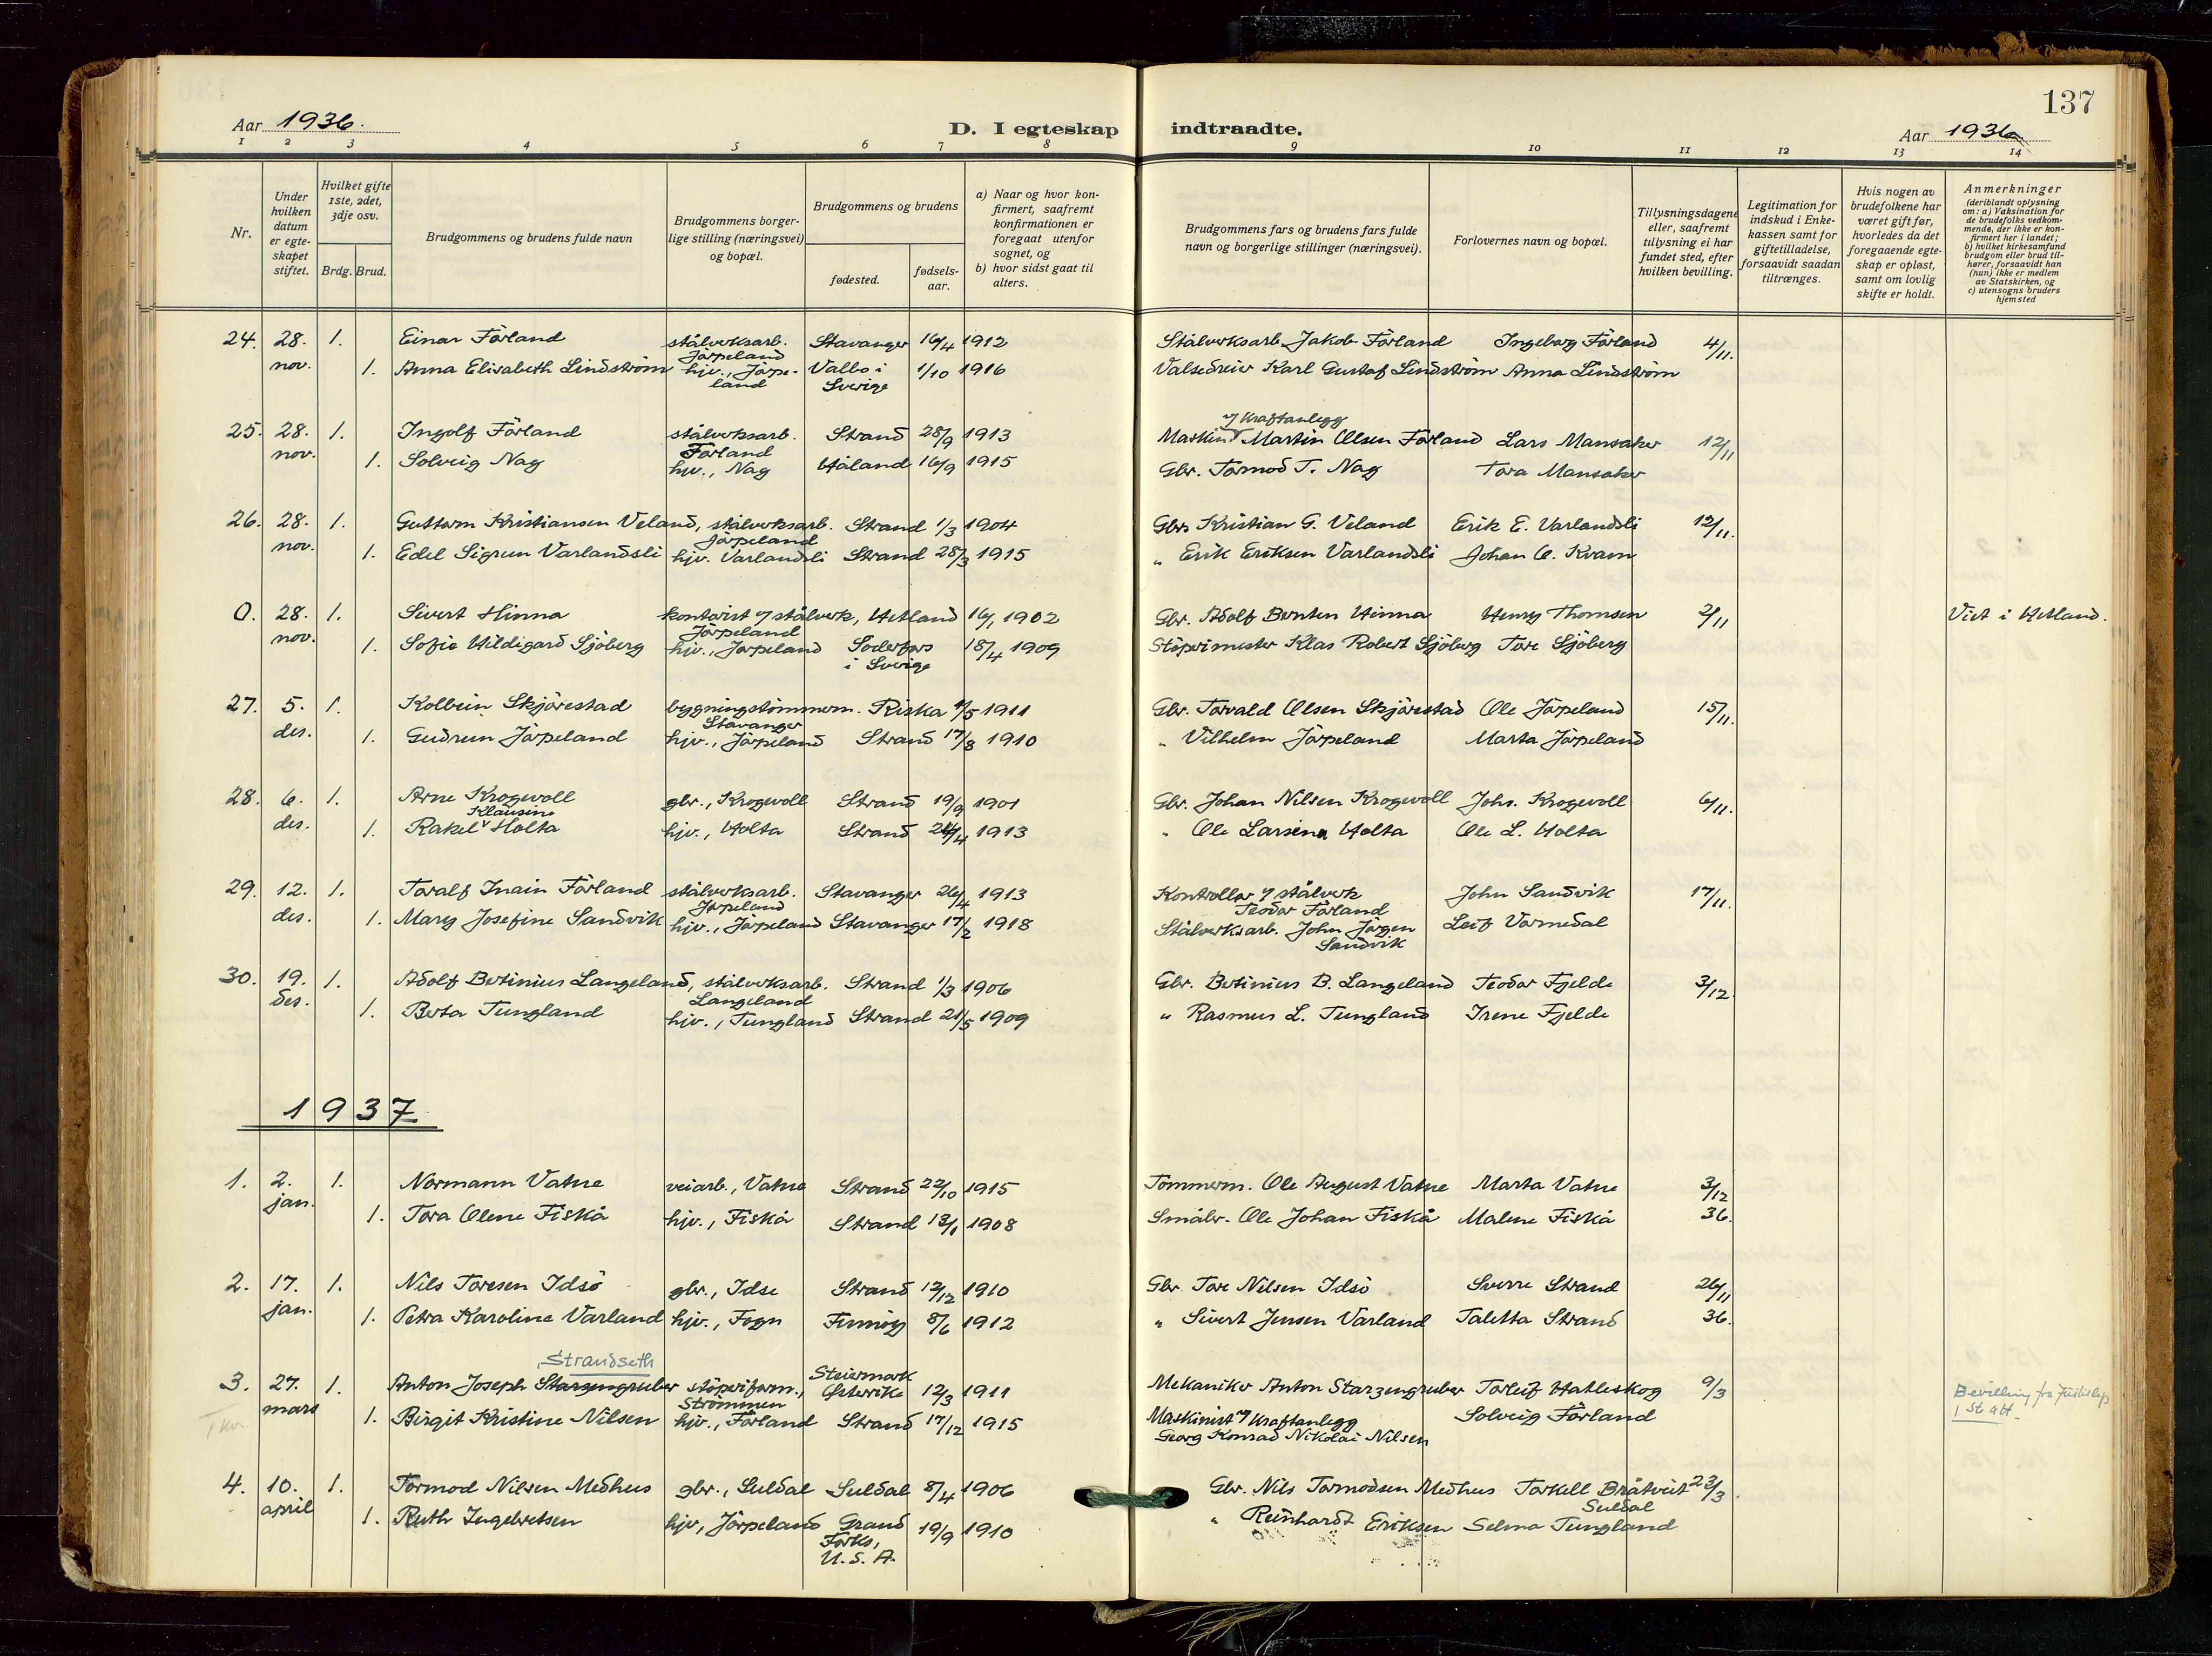 137
Aar 1936.
D. I egteskap indtraadte.
Aar 1936
1 2 3 4 5 6 7 8 9 10 11 12 13 14
Nr.
Under hvilken datum er egte-skapet stiftet.
Hvilket gifte 1ste, 2det, 3dje osv.
Brdg. Brud.
Brudgommens og brudens fulde navn
Brudgommens borger-lige stilling (næringsvei) og bopæl.
Brudgommens og brudens
fødested.
fødsels-aar.
a) Naar og hvor kon-firmert, saafremt konfirmationen er foregaat utenfor sognet, og
b) hvor sidst gaat til alters.
Brudgommens fars og brudens fars fulde navn og borgerlige stillinger (næringsvei).
Forlovernes navn og bopæl.
Tillysningsdagene eller, saafremt tillysning ei har fundet sted, efter hvilken bevilling.
Legitimation for indskud i Enke-kassen samt for giftetilladelse, forsaavidt saadan tiltrænges.
Hvis nogen av brudefolkene har været gift før, hvorledes da det foregaaende egte-skap er opløst, samt om lovlig skifte er holdt.
Anmerkninger (deriblandt oplysning om: a) Vaksination for de brudefolks vedkom-mende, der ikke er kon-firmert her i landet; b) hvilket kirkesamfund brudgom eller brud til-hører, forsaavidt han (hun) ikke er medlem av Statskirken, og c) utensogns bruders hjemsted
24. 28. nov. 1. Einar Förland stålverksarb. Jörpeland Stavanger 16/4 1912 Stålverksarb. Jakob Förland Ingeborg Förland 4/11.
1. Anna Elisabeth Lindström hjv., Jörpe-land Valbo i Sverige 1/10 1916 Valsedreier Karl Gustaf Lindström Anna Lindström
25. 28. nov. 1. Ingolf Förland stålverksarb. Förland Strand 28/9 1913 Maskin. v/ Kraftanlegg Martin Olsen Förland Lars Mansaker 12/11
1. Solveig Nag hjv., Nag Håland 16/9 1915 Gbr. Tormod T. Nag Tora Mansaker
26. 28. nov. 1. Guttorm Kristiansen Veland, stålverksarb. Jörpeland Strand 1/3 1904 Gbr. Kristian G. Veland Erik E. Varlandsli 12/11.
1. Edel Sigrun Varlandsli hjv. Varlandsli Strand 28/3 1915 " Erik Eriksen Varlandsli Johan O. Kvam
0. 28. nov. 1. Sivert Hinna kontorist v/ stålverk, Jörpeland Hetland 1902 Gbr. Adolf Bernten Hinna Henry Thomsen 2/11 Viet i Hetland.
1. Sofie Hildigard Sjöberg hjv., Jörpeland Söderfors i Sverige 18/4 1909 Stöperimester Klas Robert Sjöberg Tore Sjöberg
27. 5. des. 1. Kolbein Skjörestad bygningstömmerm. Stavanger Riska 1911 Gbr. Torvald Olsen Skjörestad Ole Jörpeland 15/11.
1. Gudrun Jörpeland hjv., Jörpeland Strand 17/8 1910 " Vilhelm Jörpeland Marta Jörpeland
28. 6. des. 1. Arne Krogevoll gbr., Krogevoll Strand 19/9 1901 Gbr. Johan Nilsen Krogevoll Johs. Krogevoll 6/11.
1. Rakel Klausine Holta hjv., Holta Strand 1913 " Ole Larsen Holta Ole L. Holta
29. 12. des. 1. Toralf Inain Förland stålverksarb. Jörpeland Stavanger 26/4 1913 Kontrollør v/ stålverk Teodor Förland John Sandvik 17/11.
1. Mary Josefine Sandvik hjv., Jörpeland Stavanger 17/2 1918 Stålverksarb. John Jörgen Sandvik Leif Vormedal
30. 19. des. 1. Adolf Bertinius Langeland, stålverksarb. Langeland Strand 1/3 1906 Gbr. Bertinius B. Langeland Teodor Fjelde 3/12.
1. Berta Tungland hjv., Tungland Strand 21/5 1909 " Rasmus L. Tungland Irene Fjelde
1937
1. 2. jan. 1. Normann Vatne veiarb., Vatne Strand 22/10 1915 Tömmerm. Ole August Vatne Marta Vatne 3/12 36.
1. Tora Olene Fiskå hjv., Fiskå Strand 13/1 1908 Småbr. Ole Johan Fiskå Malene Fiskå
2. 17. jan. 1. Nils Toresen Idsö gbr., Idse Strand 12/12 1910 Gbr. Tore Nilsen Idsö Sverre Strand 26/11 36.
1. Petra Karoline Varland hjv., Fogn Finnöy 8/6 1912 " Sivert Jensen Varland Taletta Strand
Strandseth
3. 27. mars 1. Anton Joseph Starzengruber stöperiform., Strömmen Steiermark Østerrike 12/3 1911 Mekaniker Anton Starzengruber Torleif Hatleskog 9/3 Bevilling fra
1. Birgit Kristine Nilsen hjv., Förland Strand 17/12 1915 Maskinist v/ Kraftanlegg Georg Konrad Nikolai Nilsen Solveig Förland
4. 10. april 1. Tormod Nilsen Medhus gbr., Suldal Suldal 8/4 1906 Gbr. Nils Tormodsen Medhus Torkell Bråtveit Suldal 23/3.
1. Ruth Ingebretsen hjv, Jörpeland Grand Forks, U.S.A. 19/9 1910 " Reinhardt Eriksen Selma Tungland